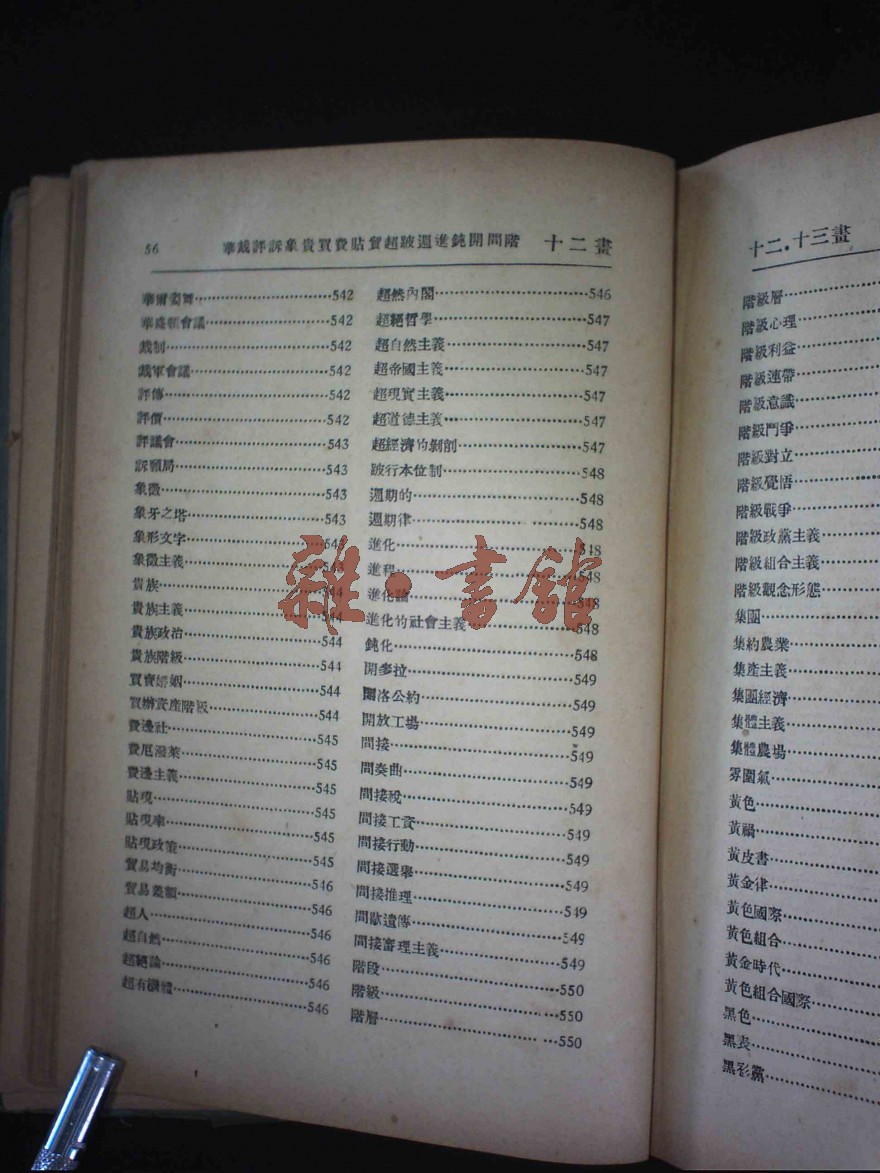 56
華裁評訴象貴買費貼貿超跛週進鈍開間階 十二畫
華爾姿舞 542
華盛頓會議 542
裁制 542
裁軍會議 542
評傳 542
評價 542
評議會 543
訴願局 543
象徵 543
象牙之塔 543
象形文字 543
象徵主義 543
貴族 544
貴族主義 544
貴族政治 544
貴族階級 544
買賣婚姻 544
買辦資產階級 544
費邊社 545
費厄潑萊 545
費邊主義 545
貼現 545
貼現率 545
貼現政策 545
貿易均衡 546
貿易差額 546
超人 546
超自然 546
超絕論 546
超有機體 546
超然內閣 546
超絕哲學 547
超自然主義 547
超帝國主義 547
超現實主義 547
超道德主義 547
超經濟的剝削 547
跛行本位制 548
週期的 548
週期律 548
進化 548
進程 548
進化論 548
進化的社會主義 548
鈍化 548
開多拉 549
開洛公約 549
開放工場 549
間接 549
間奏曲 549
間接稅 549
間接工資 549
間接行動 549
間接選舉 549
間接推理 549
間歇遺傳 549
間接審理主義 549
階段 550
階級 550
階層 550
十二.十三畫
階級層
階級心理
階級利益
階級連帶
階級意識
階級鬥爭
階級對立
階級覺悟
階級戰爭
階級政黨主義
階級組合主義
階級觀念形態
集團
集約農業
集產主義
集團經濟
集體主義
集體農場
雰圍氣
黃色
黃禍
黃皮書
黃金律
黃色國際
黃色組合
黃金時代
黃色組合國際
黑色
黑表
黑衫黨
雜·書館